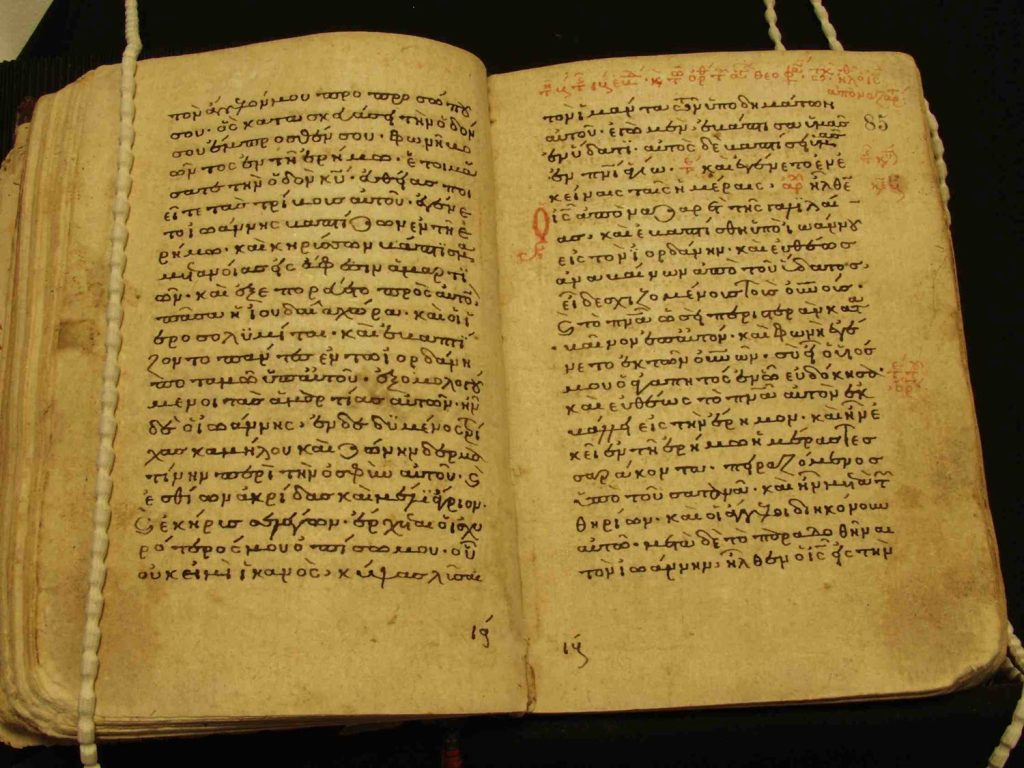 τὸν ἄγγελόν μου προ προσώπου
σου· ὃς κατασκευάσει τὴν ὁδόν
σου ἔμπροσθέν σου· φωνὴ βο
ῶντος ἐν τῇ ἐρήμω· ἑτοιμά
σατε τὴν ὁδὸν κῡ· εὐθείας ποι
εῖτε τὰς τρίβους αὐτοῦ· ἐγένε
το ἰωάννης βαπτίζων ἐν τῇ ἐ
ρήμω· καὶ κηρύσσων βάπτισμα
μετανοίας εἰς ἄφεσιν ἁμαρτι
ῶν· καὶ ἐξεπορεύετο πρὸς αὐτὸν
πᾶσα ἡ ἰουδαία χώρα· καὶ οἱ ἱ
εροσολυμῖται· καὶ ἐβαπτί
ζοντο πάντες ἐν τῶ ἰορδάνη
ποταμῶ ὑπ' αὐτοῦ· ἐξομολογού
μενοι τὰς ἁμαρτίας αὐτῶν· ἦν
δὲ ὁ ἰωάννης, ἐνδεδυμένος τρί
χας καμήλου καὶ ζώνην δερμα
τίνην περὶ τὴν ὀσφὺν αὐτοῦ· ϗ
ἐσθίων ἀκρίδας καὶ μέλι ἄγριον·
ϗ ἐκήρυσσε λέγων· ἔρχεται ὁ ἰσχυ
ρότερός μου ὀπίσω μου· οὗ
οὐκ εἰμὶ ἱκανὸς, κύψας λῦσαι
τὸν ἱμάντα τῶν ὑποδημάτων
αὐτοῦ· ἐγὼ μὲν ἐβάπτισα ὑμᾶς
ἐν ὕδατι· αὐτὸς δὲ βαπτίσει ὑμᾶς
ἐν πνι ἁγίω· καὶ ἐγένετο ἐν ἐ
κείναις ταῖς ἡμέραις, ἦλθεν
ὁ ις ἀπὸ ναζαρὲτ τῆς γαλιλαί
ας· καὶ ἐβαπτίσθη ὑπὸ ἰωάννου
εἰς τὸν ἰορδάνην· καὶ εὐθέως
ἀναβαίνων ἀπὸ τοῦ ὕδατος,
εἶδε σχιζομένους τοὺς οὐνούς·
ϗ τὸ πνα ὡσεὶ περιστερὰν κατα
βαῖνον ἐπ' αὐτόν· καὶ φωνὴ ἐγέ
νετο ἐκ τῶν οὐνῶν· σὺ εἶ ὁ υἱός
μου ὁ ἀγαπητὸς ἐν ῶ εὐδόκησα·
καὶ εὐθέως τὸ πνα αὐτὸν ἐκ
βάλλει εἰς τὴν ἔρημον· καὶ ἦν ἐ
κεῖ ἐν τῇ ἐρήμω ἡμέρας τεσ
σαράκοντα· πειραζόμενος
ὑπὸ τοῦ σατανᾶ· καὶ ἦν μετὰ τῶν
θηρίων· καὶ οἱ ἄγγελοι διηκόνουν
αὐτῶ· μετὰ δὲ τὸ παραδοθῆναι
τὸν ἰωάννην, ἦλθεν ὁ ις εἰς τὴν
85